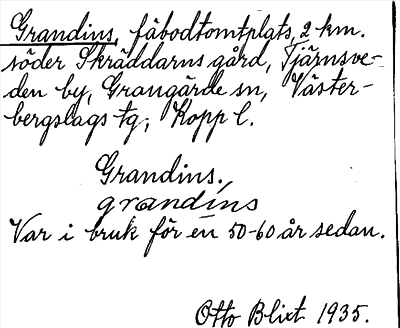 Grandins, fäbodtomtplats, 2 km.
söder Skräddarns gård, Tjärnsve-
den by, Grangärde sn, Väster-
bergslags tg; Kopp l.
Grandins,
grandins
Var i bruk för en 50-60 år sedan.
Otto Blixt 1935.